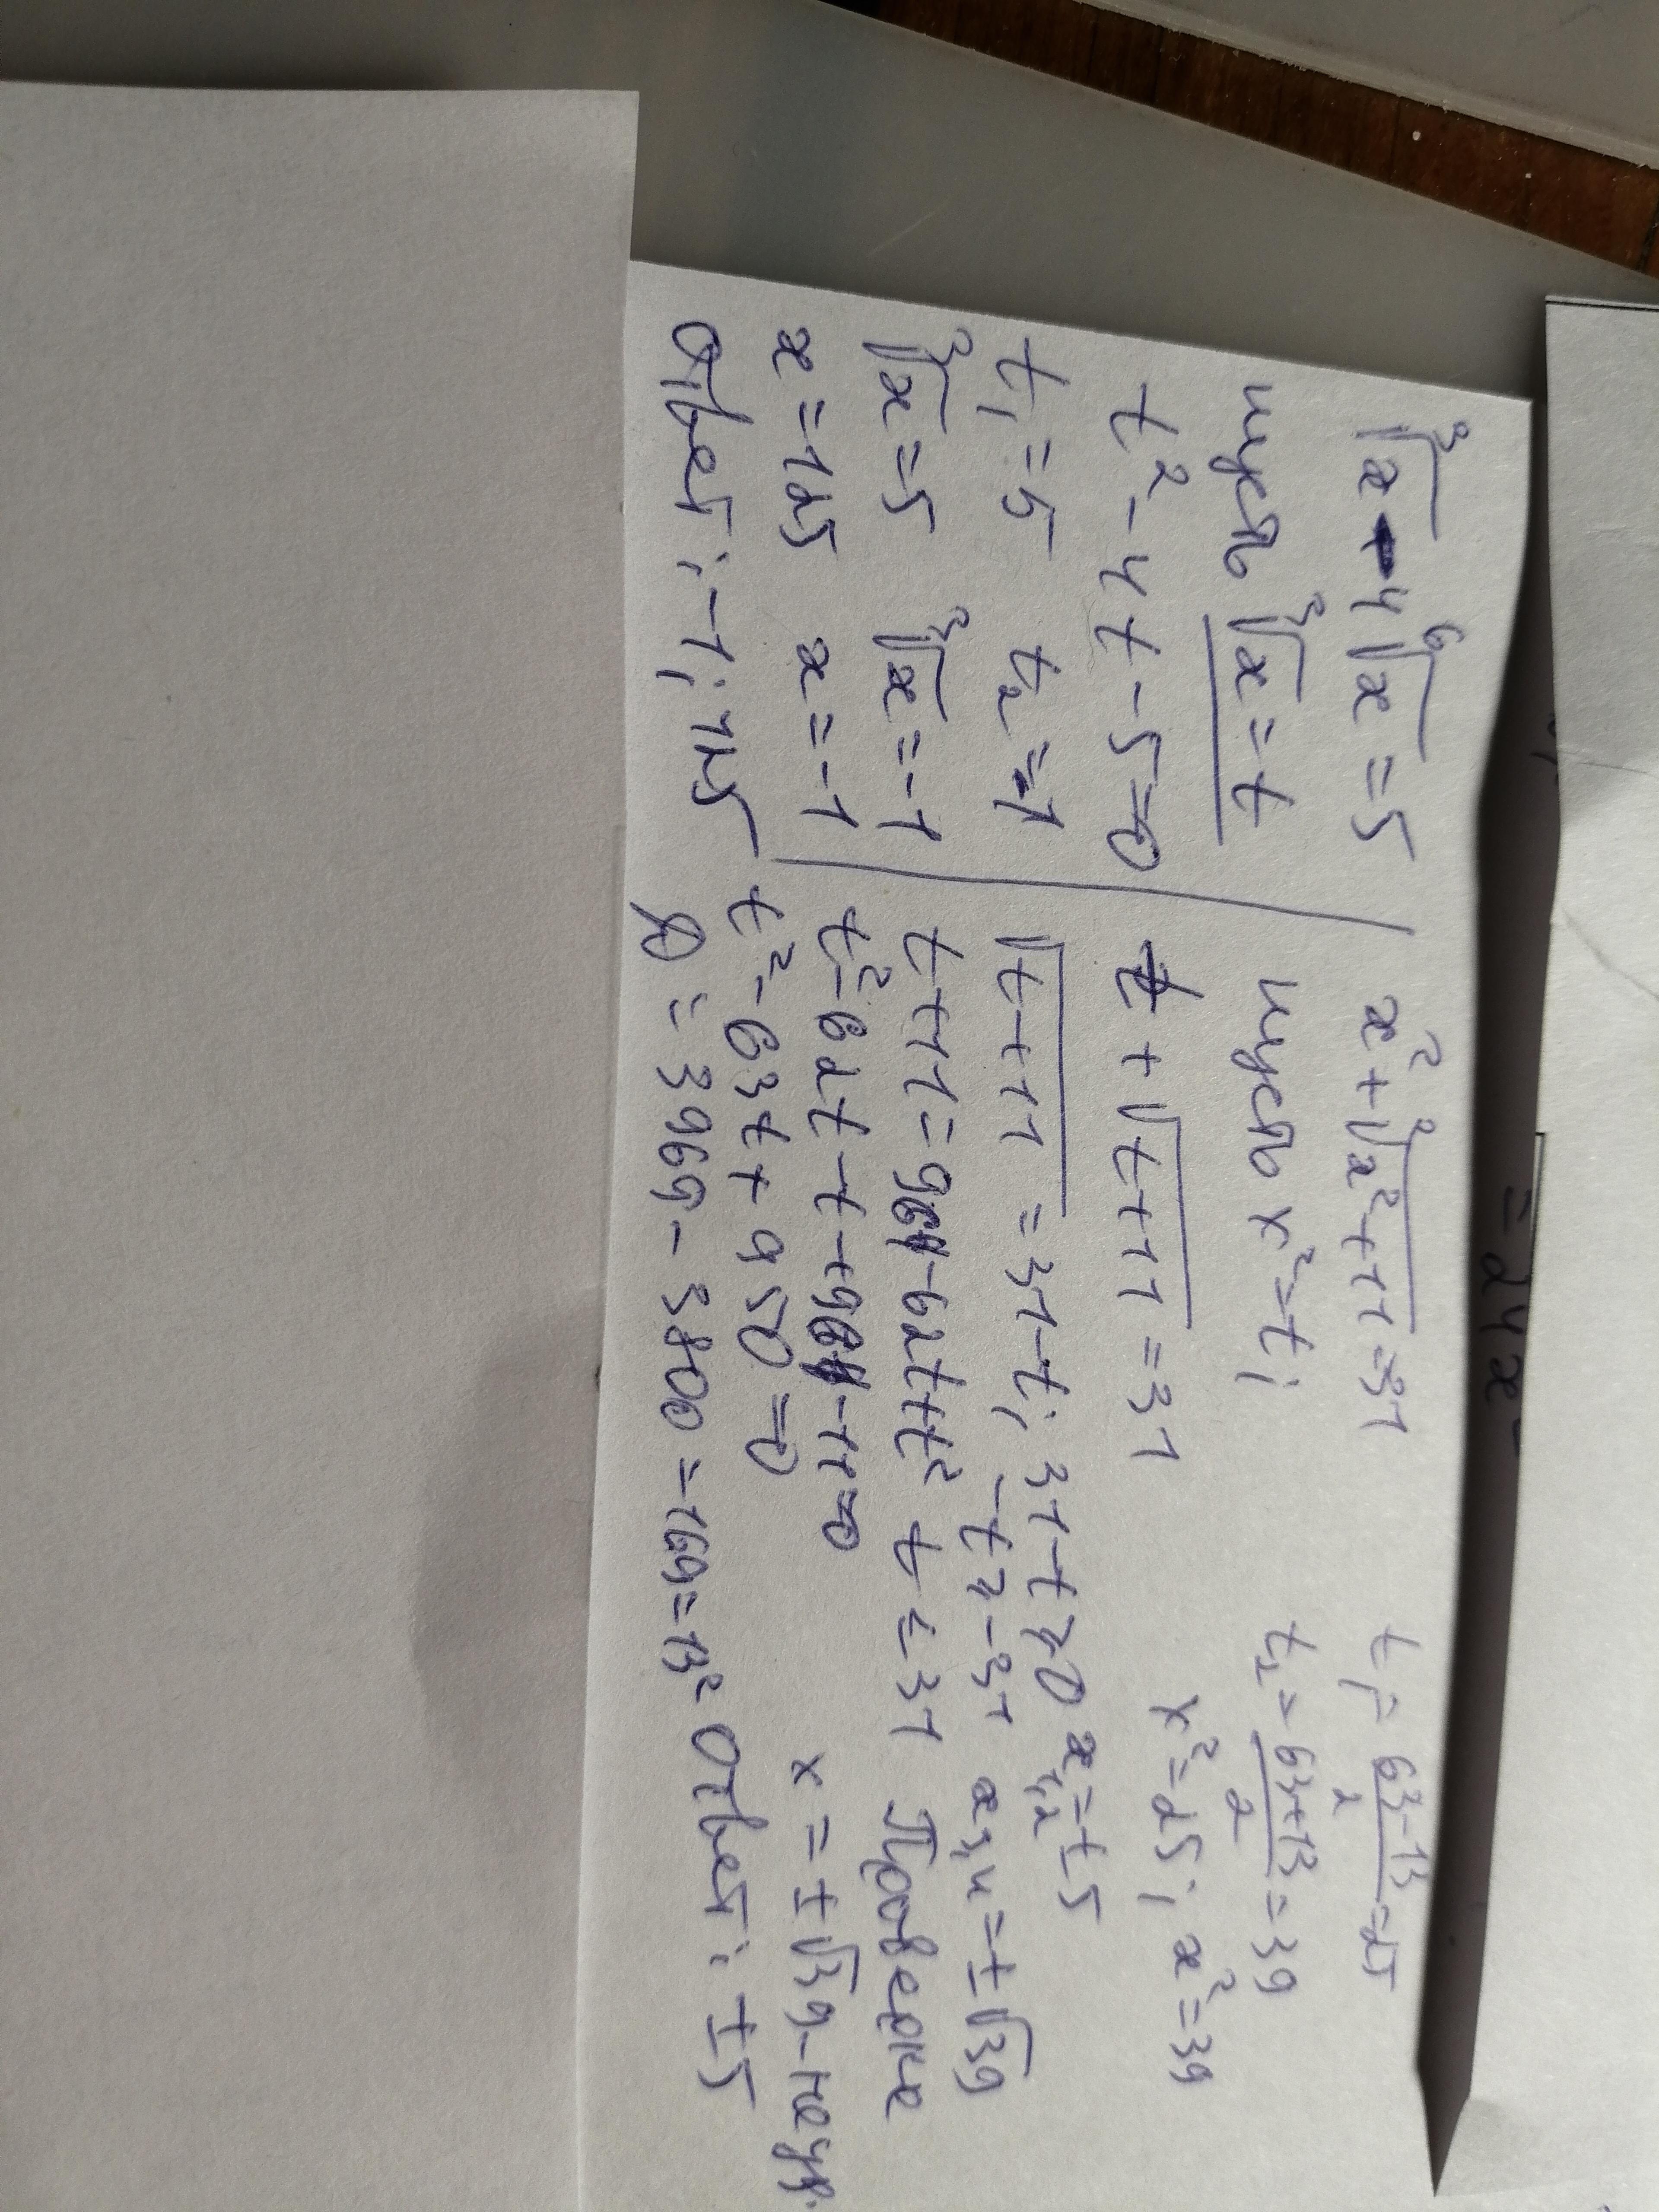 ∛x - 4 ⁶√x = 5
пусть ³√x = t
t² - 4t - 5 = 0
t₁ = 5 t₂ = -1
³√x = 5 ³√x = -1
x = 125 x = -1
Ответ: -1; 125
x² + ²√(x² + 11) = 31
пусть x² = t;
t + √(t + 11) = 31
√(t + 11) = 31 - t; 31 - t ≥ 0
-t ≥ -31
t + 11 = 961 - 62t + t² t ≤ 31
t² - 62t - t + 961 - 11 = 0
t² - 63t + 950 = 0
D = 3969 - 3800 = 169 = 13²
t₁ = (63 - 13)/2 = 25
t₂ = (63 + 13)/2 = 39
x² = 25; x² = 39
x₁,₂ = ±5
x₃,₄ = ±√39
Проверка
x = ±√39 - не уд.
Ответ: ±5
= 24x